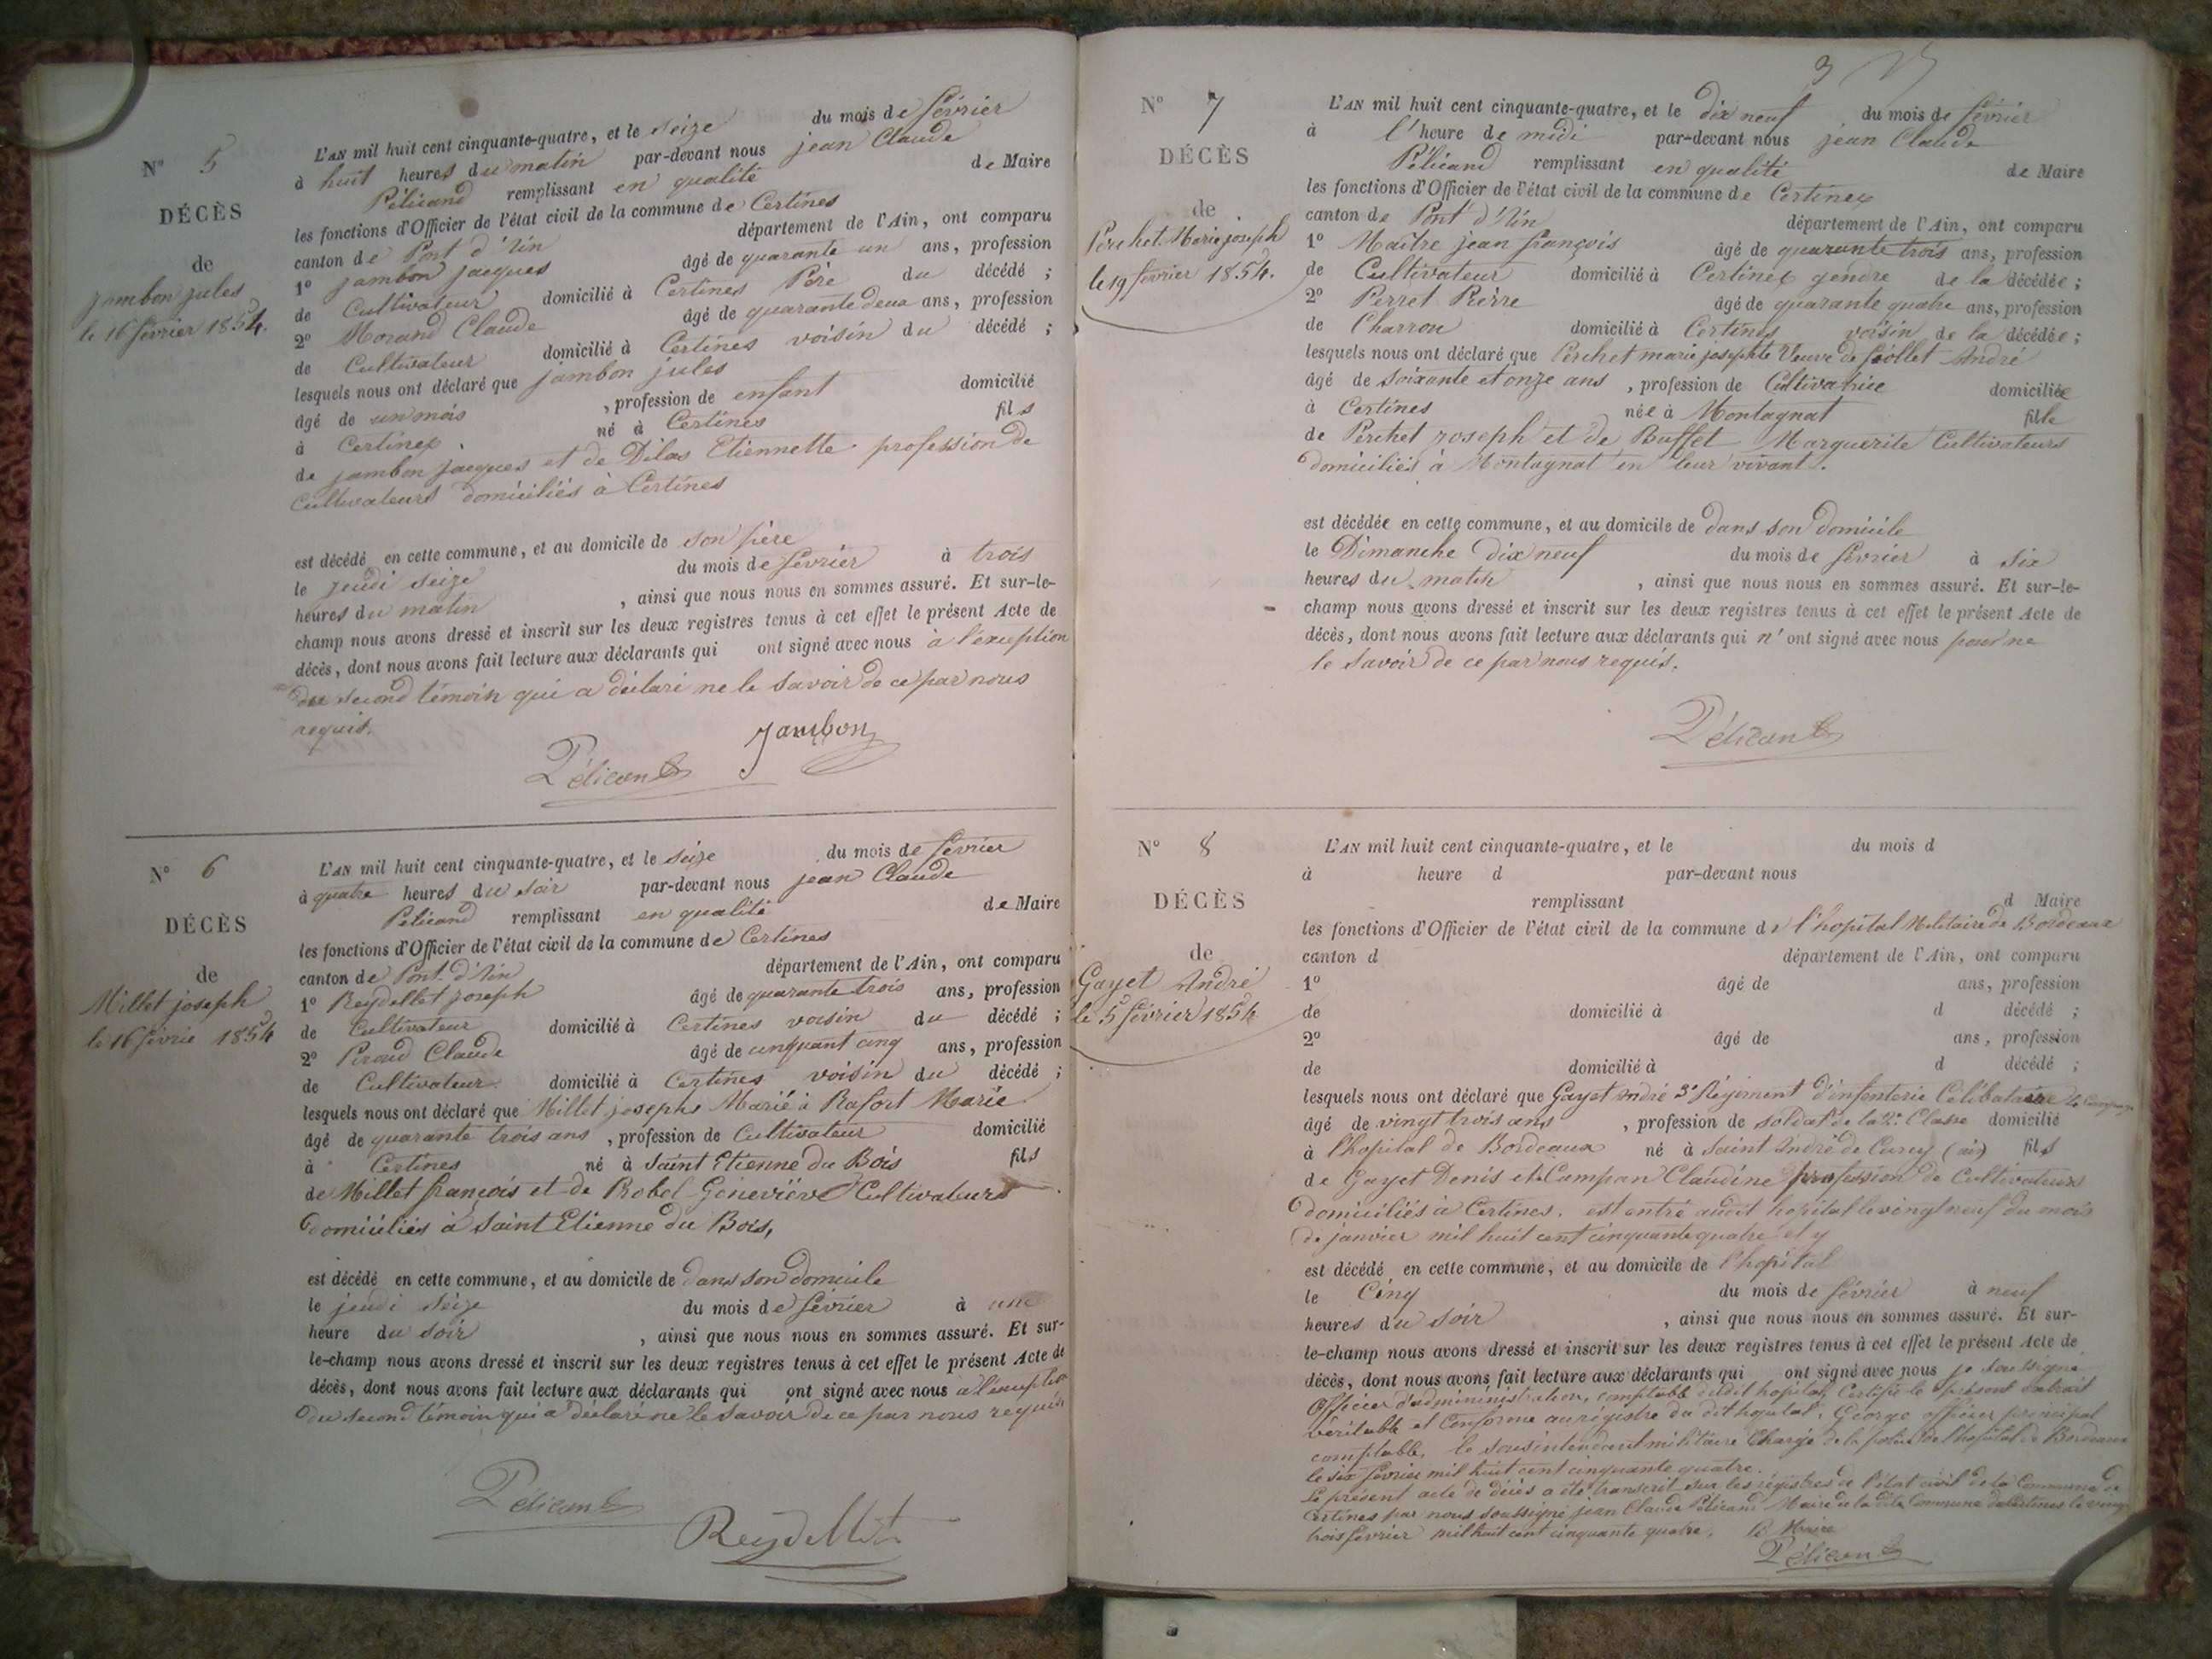 N° 5
DÉCÈS
de
jambon jules
le 16 février 1854.
L'AN mil huit cent cinquante-quatre, et le seize du mois de février
à huit heures du matin par-devant nous jean Claude
Pélicand remplissant en qualité de Maire
les fonctions d'Officier de l'état civil de la commune de Certines
canton de Pont d'Ain département de l'Ain, ont comparu
1° jambon jacques âgé de quarante un ans, profession
de Cultivateur domicilié à Certines Père du décédé ;
2° Morand Claude âgé de quarante deux ans, profession
de Cultivateur domicilié à Certines voisin du décédé ;
lesquels nous ont déclaré que jambon jules
âgé de un mois , profession de enfant domicilié
à Certines . né à Certines fils
de jambon jacques et de Dilas Etiennette profession de
Cultivateurs domiciliés à Certines
est décédé en cette commune, et au domicile de son père
le jeudi seize du mois de février à trois
heures du matin , ainsi que nous nous en sommes assuré. Et sur-le-
champ nous avons dressé et inscrit sur les deux registres tenus à cet effet le présent Acte de
décès, dont nous avons fait lecture aux déclarants qui ont signé avec nous à l'exception
du second témoin qui a déclaré ne le savoir de ce par nous
requis.
Jambon
Pélicand
N° 6
DÉCÈS
de
Millet joseph
le 16 févrie 1854
L'AN mil huit cent cinquante-quatre, et le seize du mois de février
à quatre heures du soir par-devant nous jean Claude
Pélicand remplissant en qualité de Maire
les fonctions d'Officier de l'état civil de la commune de Certines
canton de Pont d'Ain département de l'Ain, ont comparu
1° Reydellet joseph âgé de quarante trois ans, profession
de Cultivateur domicilié à Certines voisin du décédé ;
2° Piroud Claude âgé de cinquant cinq ans, profession
de Cultivateur domicilié à Certines voisin du décédé ;
lesquels nous ont déclaré que Millet josephs Marié à Rafort Marie
âgé de quarante trois ans , profession de Cultivateur domicilié
à Certines né à Saint Etienne du Bois fils
de Millet françois et de Robel Geneviève Cultivateurs
domiciliés à Saint Etienne du Bois,
est décédé en cette commune, et au domicile de dans son domicile
le jeudi seize du mois de février à une
heure du soir , ainsi que nous nous en sommes assuré. Et sur-
le-champ nous avons dressé et inscrit sur les deux registres tenus à cet effet le présent Acte de
décès, dont nous avons fait lecture aux déclarants qui ont signé avec nous à l'exception
du second témoin qui a déclaré ne le savoir de ce par nous requis
Pélicand
Reydellet
3
N° 7
DÉCÈS
de
Perchet Marie joseph
le 19 février 1854.
L'AN mil huit cent cinquante-quatre, et le dix neuf du mois de février
à l'heure de midi par-devant nous jean Claude
Pélicand remplissant en qualité de Maire
les fonctions d'Officier de l'état civil de la commune de Certines
canton de Pont d'Ain département de l'Ain, ont comparu
1° Maître jean françois âgé de quarante trois ans, profession
de Cultivateur domicilié à Certines gendre de la décédée ;
2° Perret Pierre âgé de quarante quatre ans, profession
de Charron domicilié à Certines voisin de la décédée ;
lesquels nous ont déclaré que Perchet marie josephte Veuve de féollet André
âgé de soixante et onze ans , profession de Cultivatrice domiciliée
à Certines née à Montagnat fille
de Perchet joseph et de Buffet Marguerite Cultivateurs
domiciliés à Montagnat en leur vivant.
est décédée en cette commune, et au domicile de dans son domicile
le Dimanche dix neuf du mois de février à six
heures du matin , ainsi que nous nous en sommes assuré. Et sur-le-
champ nous avons dressé et inscrit sur les deux registres tenus à cet effet le présent Acte de
décès, dont nous avons fait lecture aux déclarants qui n'ont signé avec nous pour ne
le savoir de ce par nous requis.
Pélicand
N° 8
DÉCÈS
de
Gayet André
le 5 février 1854
L'AN mil huit cent cinquante-quatre, et le du mois d
à heure d par-devant nous
remplissant d Maire
les fonctions d'Officier de l'état civil de la commune de l'hopital Militaire de Bordeaux
canton d département de l'Ain, ont comparu
1° âgé de ans, profession
de domicilié à d décédé ;
2° âgé de ans, profession
de domicilié à d décédé ;
lesquels nous ont déclaré que Gayet André 3e Régiment d'infenterie Célibataire
âgé de vingt trois ans , profession de soldat de la 2e Classe domicilié
à l'hopital de Bordeaux né à Saint André de Curcy (ain) fils
de Gayet Denis et Campan Claudine profession de Cultivateurs
domiciliés à Certines. est entré audit hopital le vingt neuf du mois
de janvier mil huit cent cinquante quatre et y
est décédé en cette commune, et au domicile de l'hopital
le Cinq du mois de février à neuf
heures du soir , ainsi que nous nous en sommes assuré. Et sur-
le-champ nous avons dressé et inscrit sur les deux registres tenus à cet effet le présent Acte de
décès, dont nous avons fait lecture aux déclarants qui ont signé avec nous je soussigné
Officier d'administration, comptable dudit hopital, Certifie le présent extrait
véritable et Conforme au régistre du dit hopital. George officier principal
comptable. le sous intendent militaire Chargé de la police de l'hopital de Bordeaux
le six février mil huit cent cinquante quatre.
Le présent acte de décès a été transcrit sur les régistres de l'état civil de la Commune de
Certines par nous soussigné jean Claude Pélicand Maire de la dite Commune de Certines le vingt
trois février mil huit cent cinquante quatre. le Maire
Pélicand